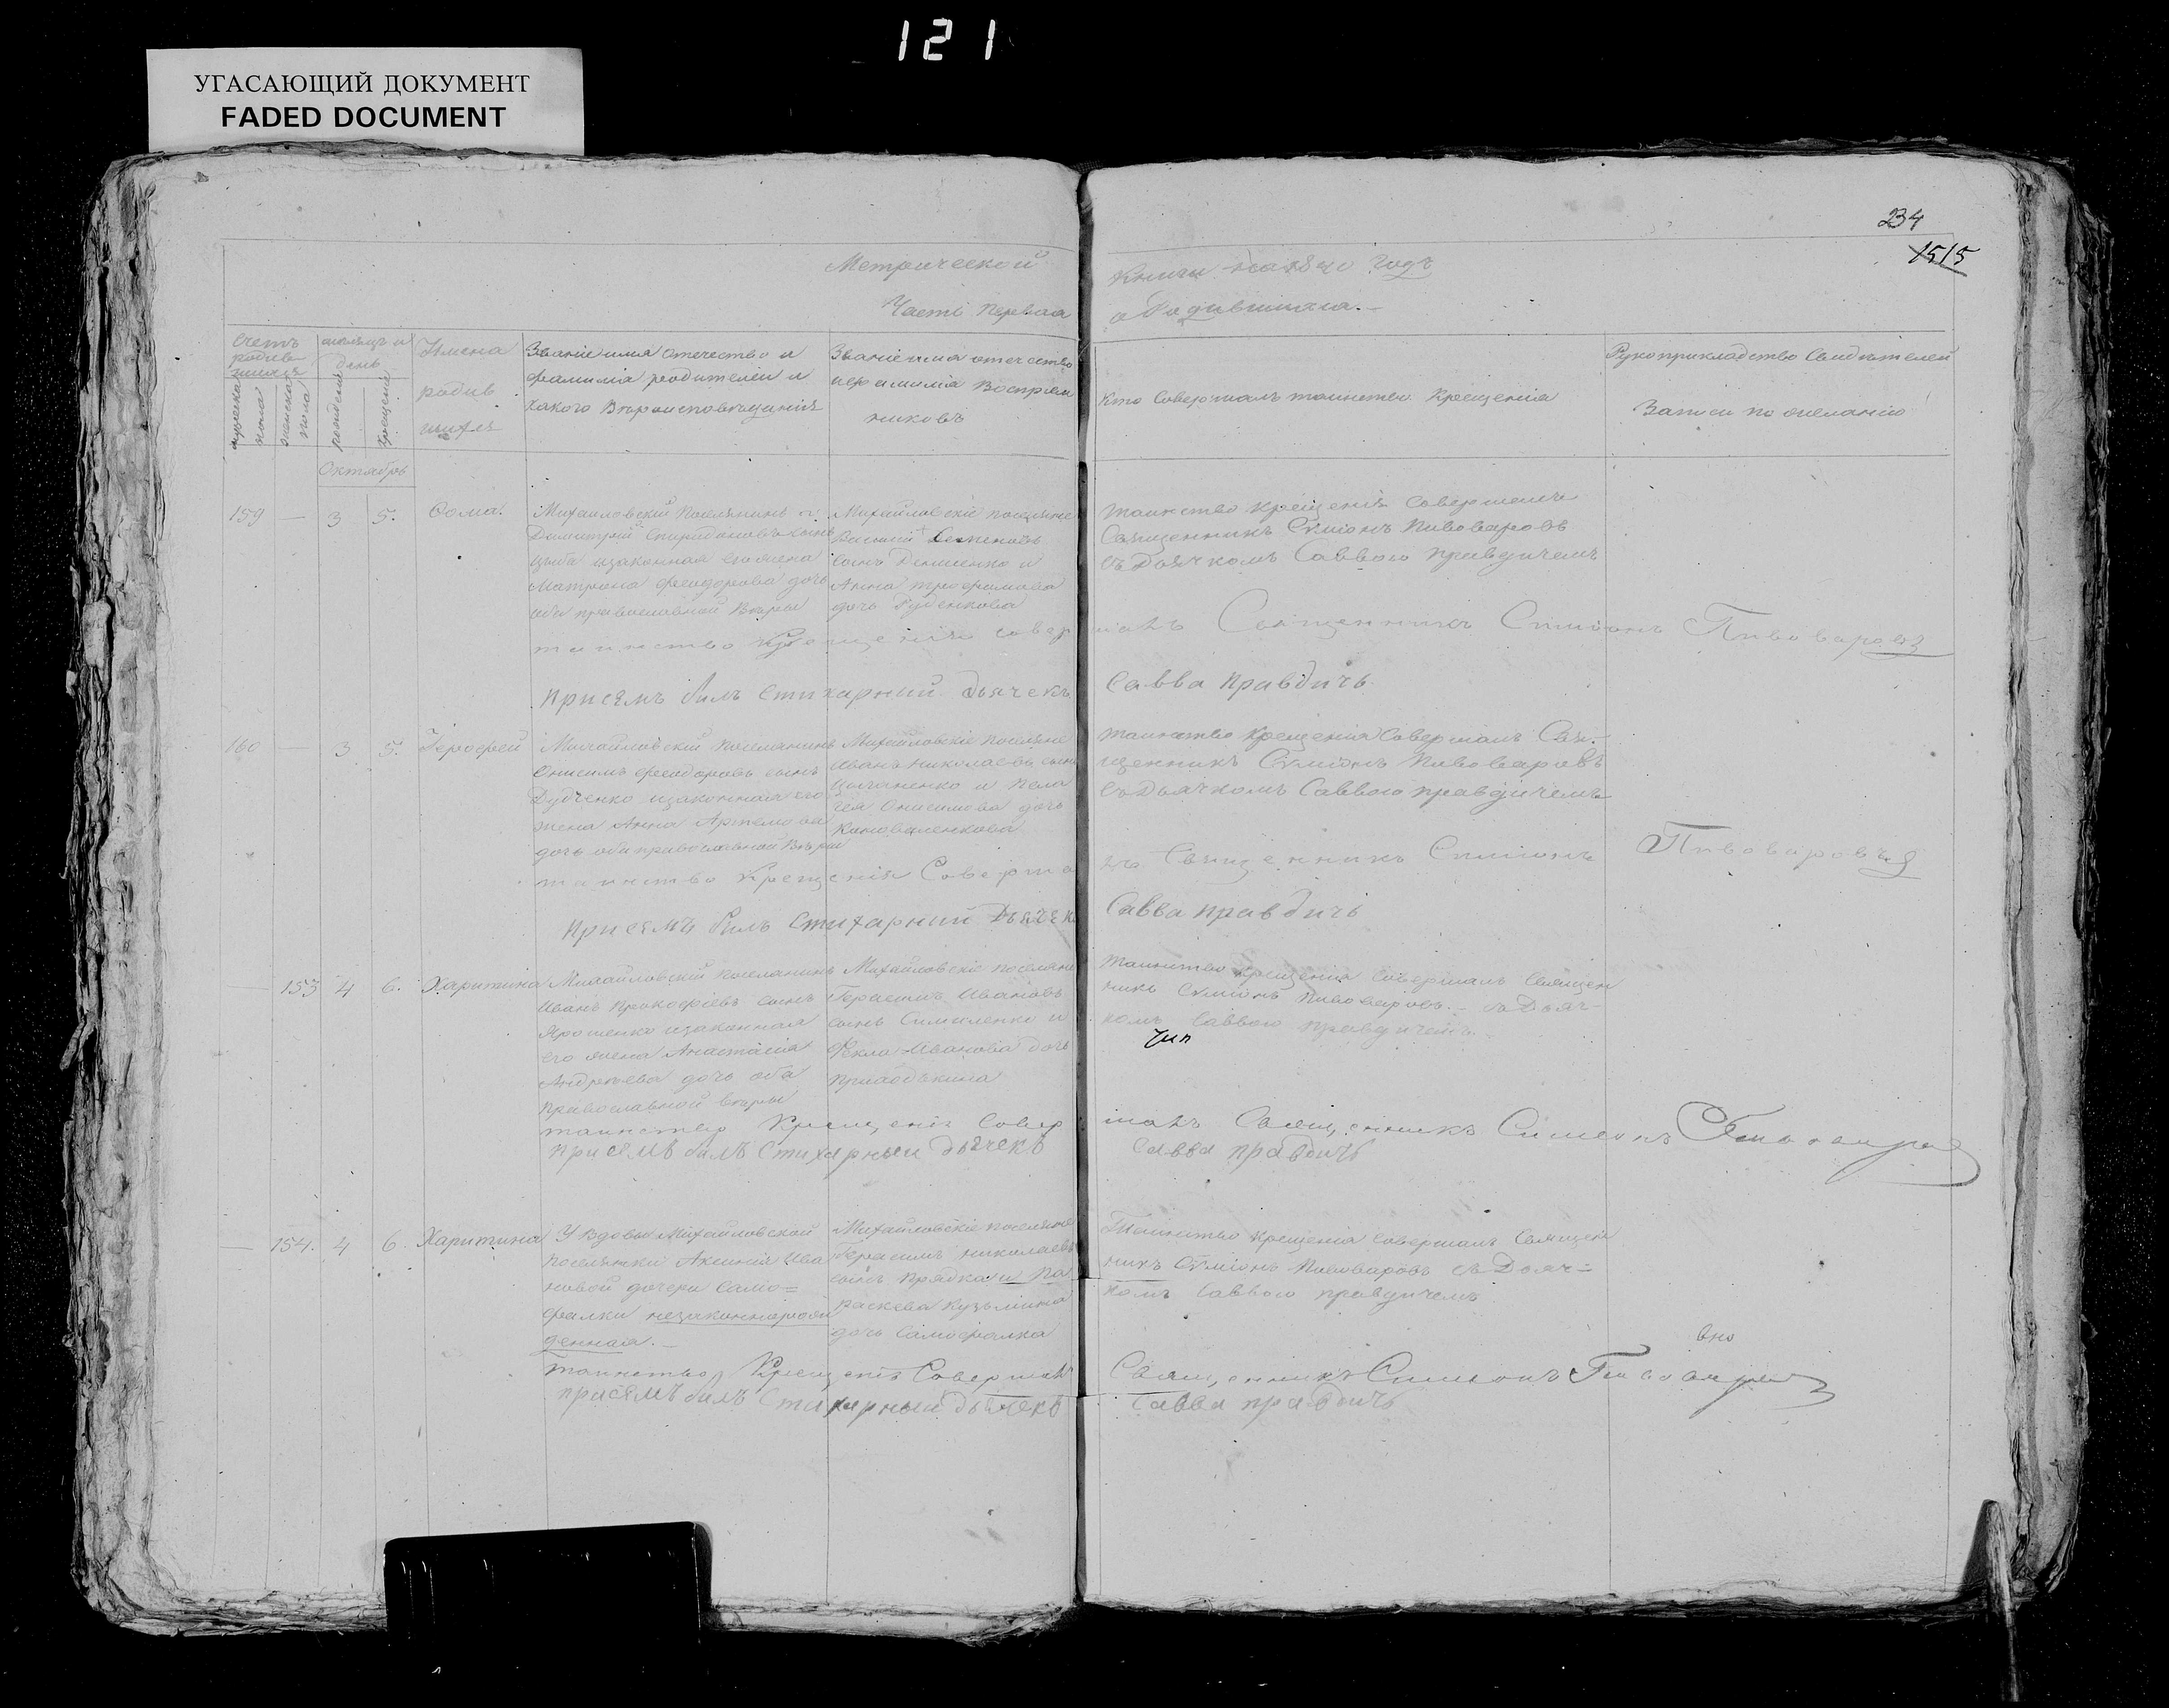 121
УГАСАЮЩИЙ ДОКУМЕНТ
FADED DOCUMENT
234
1515
Метрической
Часть Первая
Книги на 1840 годъ
о Родившихся.
Счетъ родив-шихся
мужеска пола
женска пола
месяцъ и день
рожденія
крещенія
Имена
родив
шихся
Званіе имя отечество и
фамилія родителей и
какого Вероисповеданія
Званіе имя отечество
и фамилія Воспріем
никовъ
Кто Совершалъ таинство Крещенія
Рукоприкладство Свидетелей
Записи по желанію
Октябрь
159 — 3 5. Фома.
Михайловскій Поселянинъ
Димитрій Спиридоновъ сынъ
Цыба изаконная его жена
Матрона Феодорова дочь
оба православной Веры
Михайловскіе поселяне
Василій Семеновъ
сынъ Демченко и
Анна трофимова
дочь Руденкова
таинство Крещенія Совершалъ
Священникъ Сумеонъ Пивоваровъ
съ Дьячкомъ Саввою правдичемъ
таинство Крещенія совер
шалъ Священникъ Симеонъ Пивоваровъ
присемъ билъ Стихарный дьячекъ
Савва правдичъ
160 — 3 5. Герофей
Михайловскій поселянинъ
Онисимъ Феодоровъ сынъ
Дудченко изаконная его
жена Анна Артемова
дочь оба православной Веры
Михайловскіе поселяне
Иванъ Николаевъ сынъ
Цыганенко и Пела
гея Онисимова дочь
Коноваленкова
таинство Крещенія Совершалъ Свя-
щенникъ Сумеонъ Пивоваровъ
съ Дьячкомъ Саввою правдичемъ
таинство Крещенія Соверша
лъ Священникъ Симеонъ Пивоваровъ
присемъ билъ Стихарний Дьячекъ
Савва правдичъ
— 153 4 6. Харитина
Михайловскій поселянинъ
Иванъ Прокофіевъ сынъ
Ярошенко изаконная
его жена Анастасія
Андреева дочь оба
православной веры
Михайловскіе поселяне
Герасимъ Ивановъ
сынъ Симиленко и
Фекла Иванова дочь
Таинство крещенія Совершалъ Священ
никъ Сумеонъ Пивоваровъ. съ Дьяч-
комъ Саввою правдичемъ
таинство Крещенія Совер
шалъ Священникъ Симеонъ Пивоваровъ
присемъ билъ Стихарный дьячекъ
Савва правдичъ
— 154. 4 6. Харитина
У Вдовы Михайловской
поселянки Аксиніи Ива
новой дочери Само=
фалки незаконнорож
денная.
Михайловскіе поселяне
Герасимъ Николаевъ
сынъ Прядка и Па
раскева Кузьмина
дочь Самофалка
Таинство крещенія Совершалъ Священ
никъ Сумеонъ Пивоваровъ съ Дьяч=
комъ Саввою правдичемъ
таинство Крещенія Совершалъ
Священникъ Симеонъ Пивоваровъ
присемъ билъ Стихарный дьячекъ
Савва правдичъ